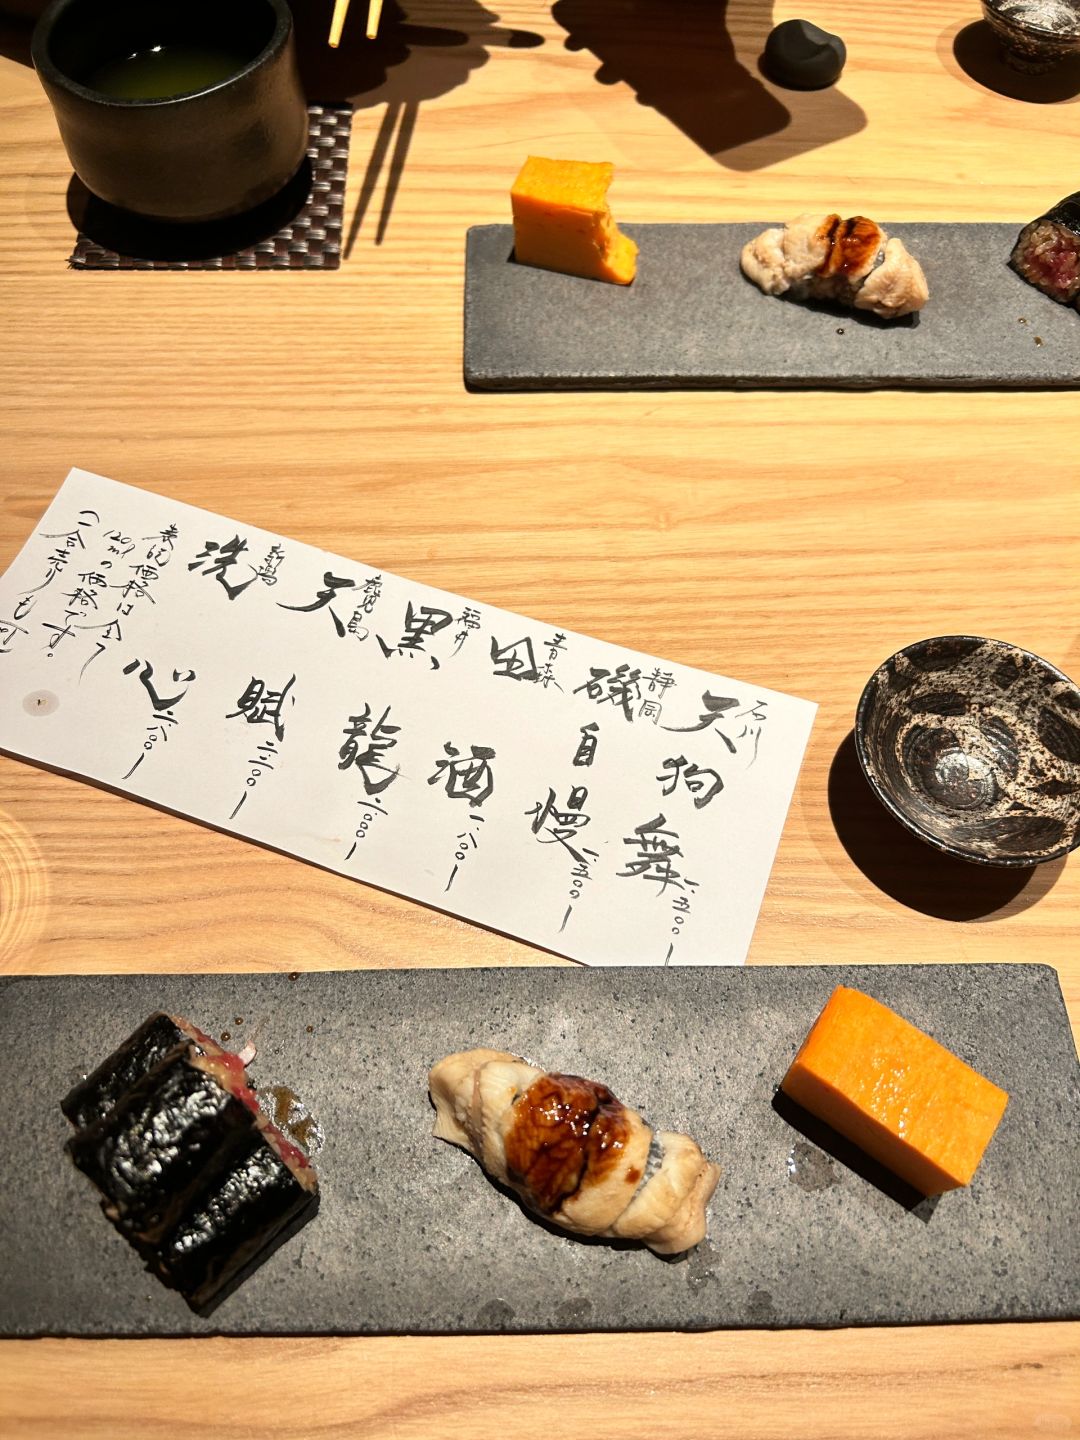 石川 天狗舞 一、五〇〇ー
静岡 磯自慢 一、五〇〇ー
青森 田酒 一、八〇〇ー
福井 黒龍 二、〇〇〇ー
鹿児島 天賦 二、二〇〇ー
新潟 洗心 二、八〇〇ー
表記価格は全て
120mlの価格です。
(一合売りも可)